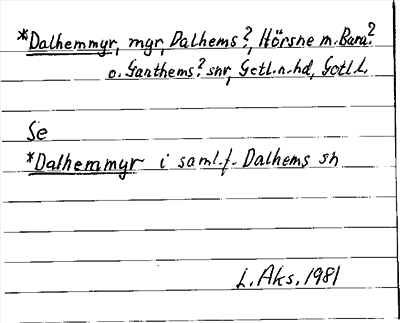 *Dalhemmyr, myr, Dalhems?, Hörsne m. Bara?
o. Ganthems? snr, Gotl.n.hd, Gotl.L.
Se
*Dalhemmyr i saml.f. Dalhems sn
L. Aks. 1981